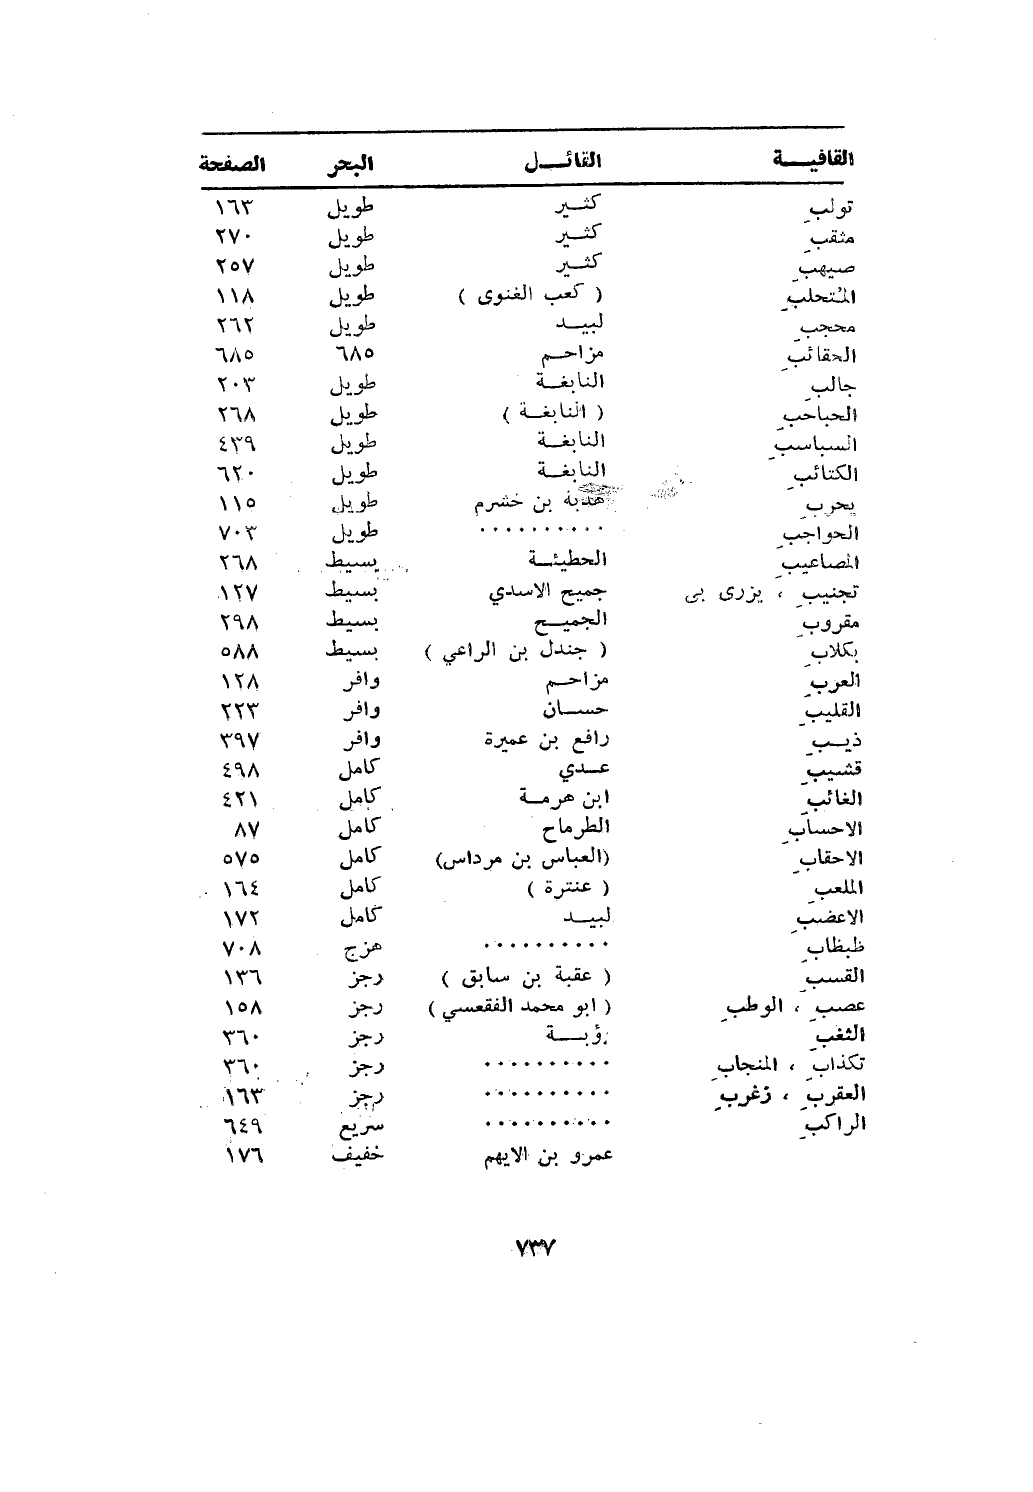 القافيـــة القائــل البحر الصفحة
تولبِ كثـير طويل ١٦٣
مثقبِ كثـير طويل ٢٧٠
صيهبِ كثـير طويل ٢٥٧
المُتحلبِ ( كعب الغنوى ) طويل ١١٨
محجبِ لبيـد طويل ٢٦٢
الحقائبِ مزاحـم ٦٨٥ ٦٨٥
جالبِ النابغـة طويل ٢٠٣
الحباحبِ ( النابغـة ) طويل ٢٦٨
السباسبِ النابغـة طويل ٤٣٩
الكتائبِ النابغـة طويل ٦٢٠
يحربِ هدبة بن خشرم طويل ١١٥
الحواجبِ ٠٠٠٠٠٠٠٠٠٠ طويل ٧٠٣
المصاعيبِ الحطيئـة بسيط ٢٦٨
تجنيبِ ، يزرى بى جميح الاسدي بسيط ١٢٧
مقروبِ الجميـح بسيط ٢٩٨
بكلابِ ( جندل بن الراعي ) بسيط ٥٨٨
العربِ مزاحـم وافر ١٢٨
القليبِ حسـان وافر ٢٢٣
ذيـبِ رافع بن عميرة وافر ٣٩٧
قشيبِ عـدي كامل ٤٩٨
الغائبِ ابن هرمـة كامل ٤٢١
الاحسابِ الطرماح كامل ٨٧
الاحقابِ (العباس بن مرداس) كامل ٥٧٥
الملعبِ ( عنترة ) كامل ١٦٤
الاعضبِ لبيـد كامل ١٧٢
ظبظابِ ٠٠٠٠٠٠٠٠٠٠ هزج ٧٠٨
القسبِ ( عقبة بن سابق ) رجز ١٣٦
عصبِ ، الوطبِ ( ابو محمد الفقعسي ) رجز ١٥٨
الثغبِ رؤبـة رجز ٣٦٠
تكذابِ ، المنجابِ ٠٠٠٠٠٠٠٠٠٠ رجز ٣٦٠
العقربِ ، زغربِ ٠٠٠٠٠٠٠٠٠٠ رجز ١٦٣
الراكبِ ٠٠٠٠٠٠٠٠٠٠ سريع ٦٤٩
عمرو بن الايهم خفيف ١٧٦
٧٣٧